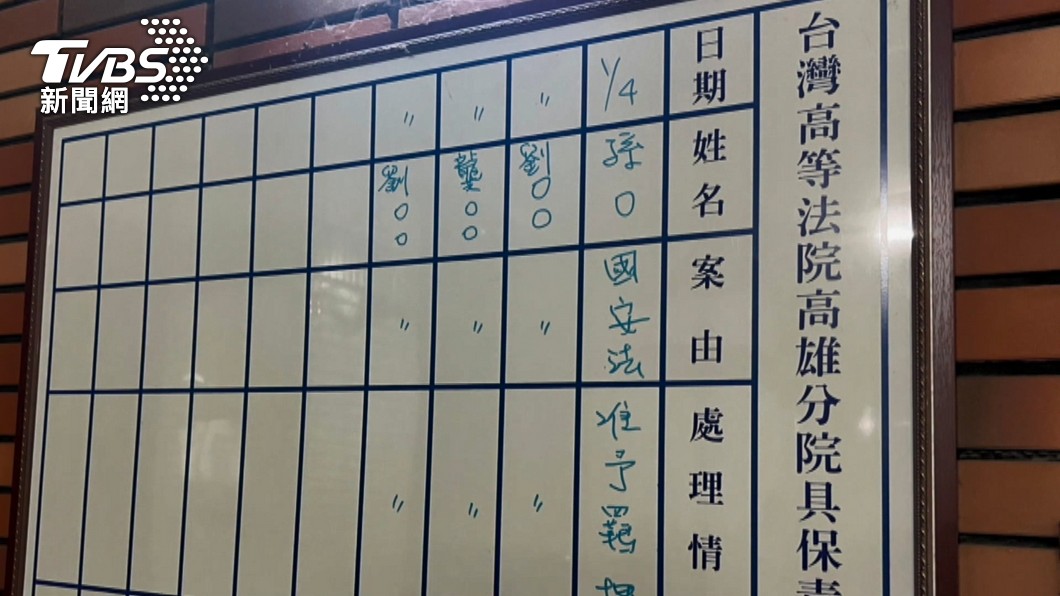 TVBS
新聞網
台灣高等法院高雄分院具保責
日期 姓名 案由 處理情
1/4 孫○ 國安法 准予羈押
〃 劉○○ 〃 〃
〃 龔○○ 〃 〃
〃 劉○○ 〃 〃